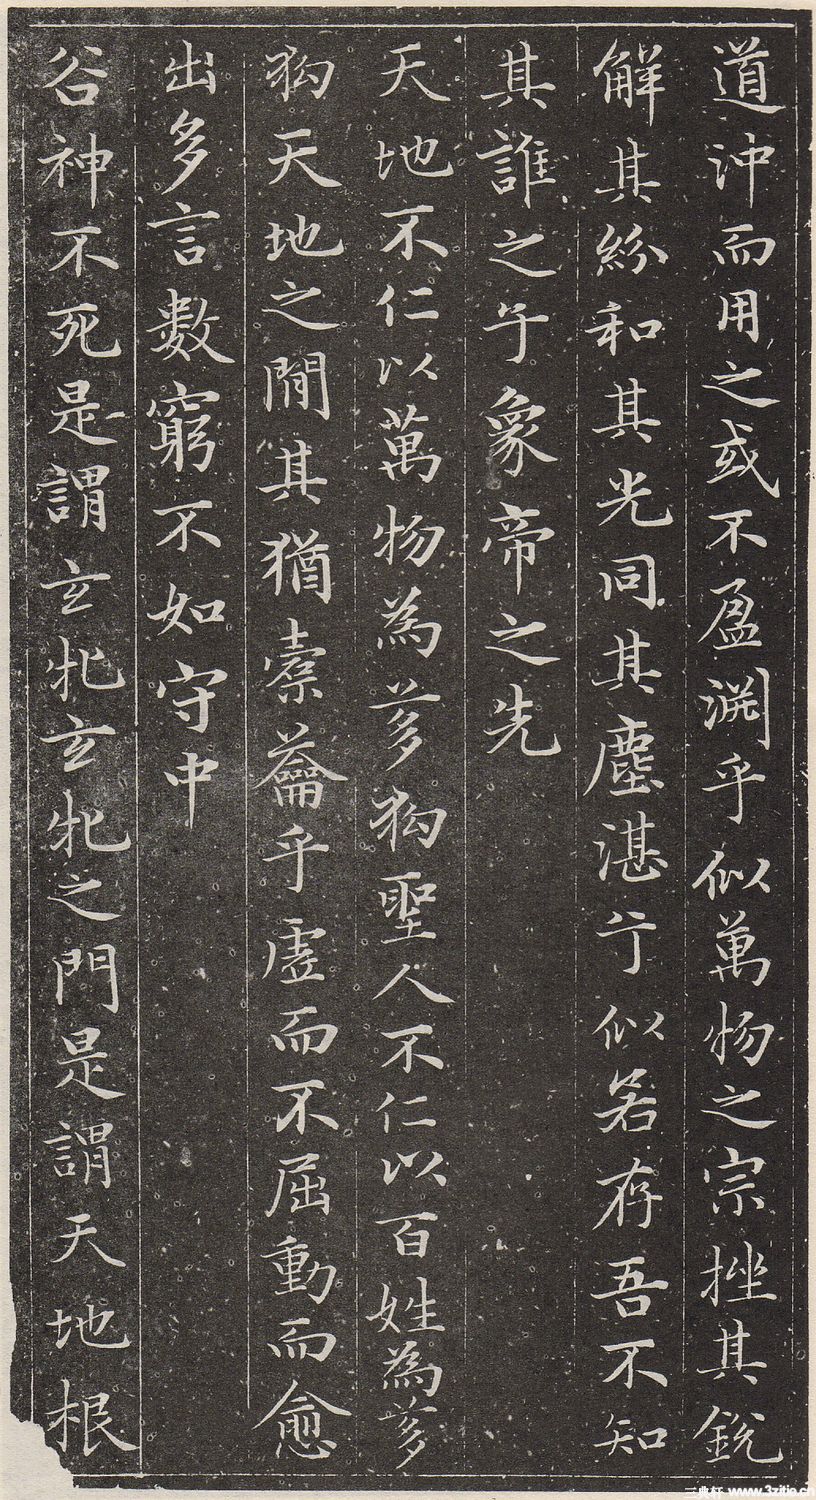 道沖而用之或不盈淵乎似萬物之宗挫其銳
解其紛和其光同其塵湛兮似若存吾不知
其誰之子象帝之先
天地不仁以萬物為芻狗聖人不仁以百姓為芻
狗天地之間其猶橐籥乎虛而不屈動而愈
出多言數窮不如守中
谷神不死是謂玄牝玄牝之門是謂天地根
三典轩 www.3zitie.cn